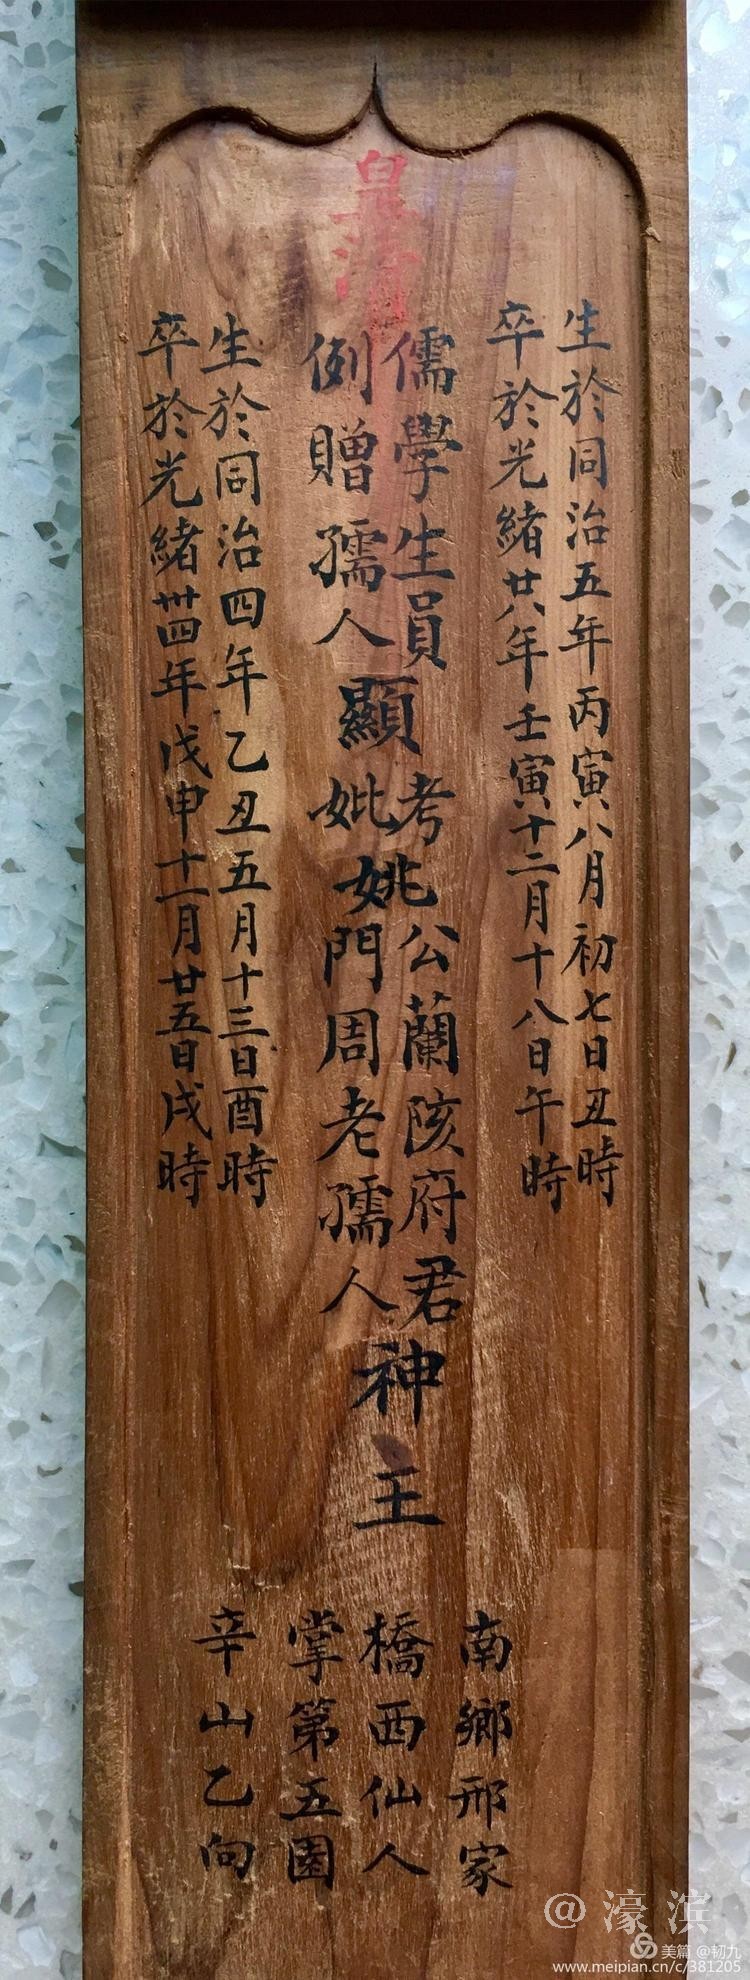 皇清
生於同治五年丙寅八月初七日丑時
卒於光緒廿八年壬寅十二月十八日午時
儒學生員
例贈孺人
顯
考
妣
姚
公蘭陔府君
門周老孺人
神主
生於同治四年乙丑五月十三日酉時
卒於光緒卅四年戊申十一月廿五日戌時
南鄉邢家
橋西仙人
掌第五園
辛山乙向
@濠滨
美篇 @韧九
www.meipian.cn/c/381205